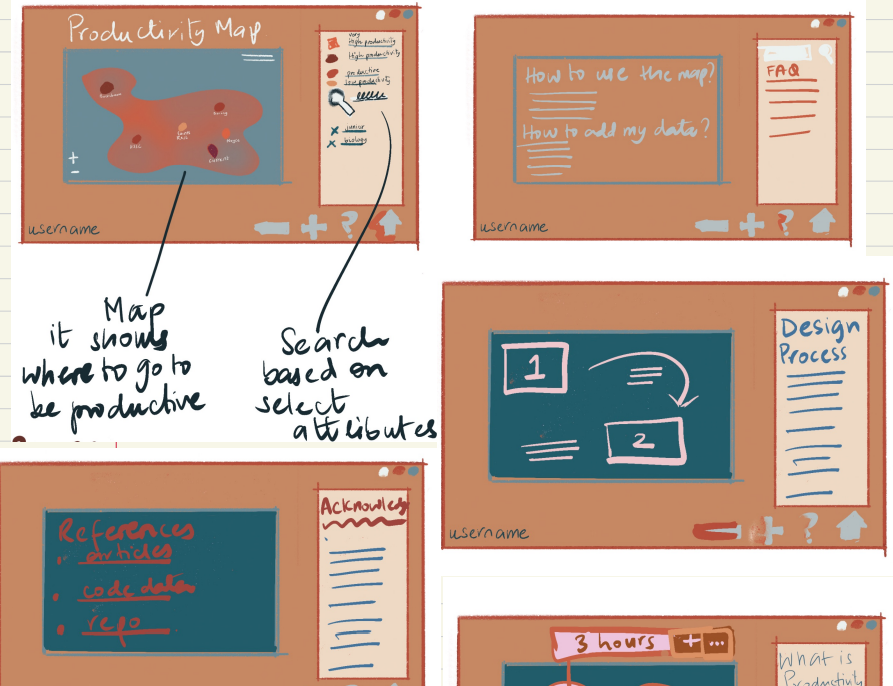 Productivity Map
very
high productivity
High productivity
productive
low productivity
junior
biology
+
-
username
Map
it shows
where to go to
be productive
Search
based on
select
attributes
How to use the map?
How to add my data?
FAQ
username
?
1
2
Design
Process
username
?
References
articles
code data
repo
Acknowledg
3 hours
+ ...
What is
Productivity